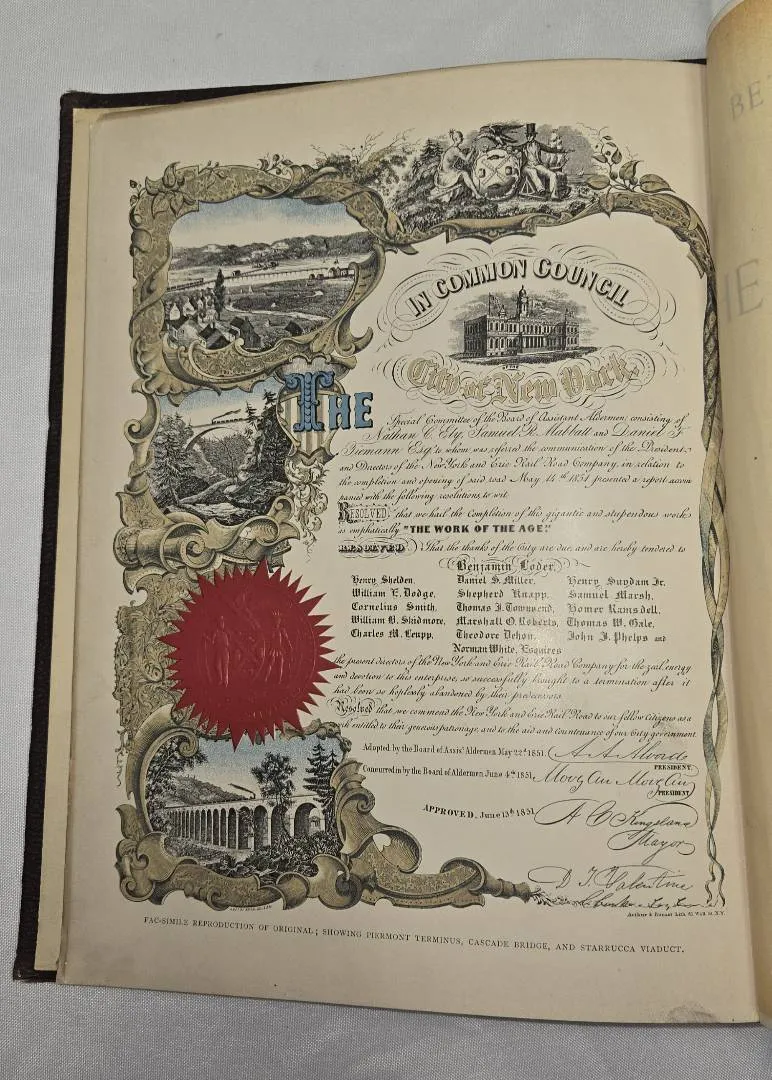 IN COMMON COUNCIL
OF THE
City of New York.
THE
Special Committee of the Board of Assistant Aldermen, consisting of
Nathan C. Ely, Samuel R. Mabbatt and Daniel F.
Tiemann Esqs. to whom was referred the communication of the President
and Directors of the New York and Erie Rail Road Company, in relation to
the completion and opening of said road May 14th 1851 presented a report accom
panied with the following resolutions, to wit,
RESOLVED, that we hail the Completion of this gigantic and stupendous work
as emphatically "THE WORK OF THE AGE!"
RESOLVED That the thanks of the City are due, and are hereby tendered to
Benjamin Loder,
Henry Shelden, Daniel S. Miller, Henry Suydam Jr.
William E. Dodge, Shepherd Knapp, Samuel Marsh,
Cornelius Smith, Thomas J. Townsend, Homer Ramsdell,
William B. Skidmore, Marshall O. Roberts, Thomas W. Gale,
Charles M. Leupp, Theodore Dehon, John J. Phelps and
Norman White, Esquires
the present directors of the New York and Erie Rail Road Company for the zeal, energy
and devotion to this enterprise, so successfully brought to a termination after it
had been so hoplessly abandoned by their predecessors
Resolved that we commend the New York and Erie Rail Road to our fellow Citizens as a
work entitled to their generous patronage, and to the aid and countenance of our City government.
Adopted by the Board of Assist Aldermen May 22d 1851. A. A. Alvord
PRESIDENT.
Concurred in by the Board of Aldermen June 4th 1851. Morgan Morgan
PRESIDENT
APPROVED, June 13th 1851. A C Kingsland
Mayor
D T Valentine
FAC-SIMILE REPRODUCTION OF ORIGINAL; SHOWING PIERMONT TERMINUS, CASCADE BRIDGE, AND STARRUCCA VIADUCT.
BE